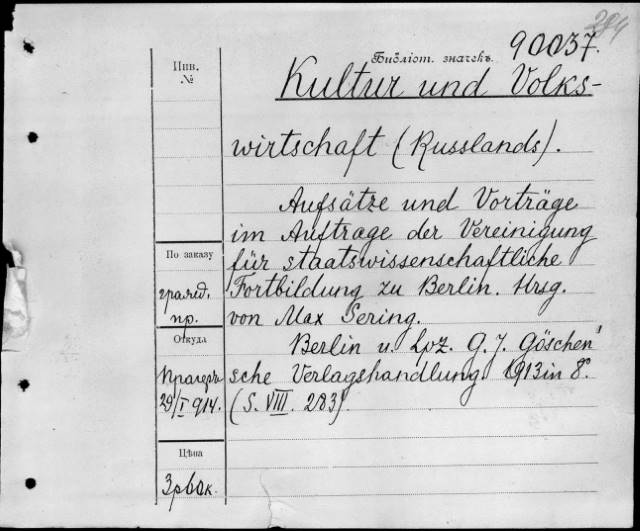 284
90037.
Инв.
№
Библіот. значекъ
Kultur und Volks-
wirtschaft (Russlands).
Aufsätze und Vorträge
im Auftrage der Vereinigung
По заказу
für staatswissenschaftliche
гражд.
Fortbildung zu Berlin. Hrsg.
пр.
von Max Sering.
Откуда
Berlin u. Lpz. G. J. Göschen'
Прагеръ
sche Verlagshandlung 1913 in 8°.
29/I 914.
(S. VIII. 283).
Цѣна
3р60к.